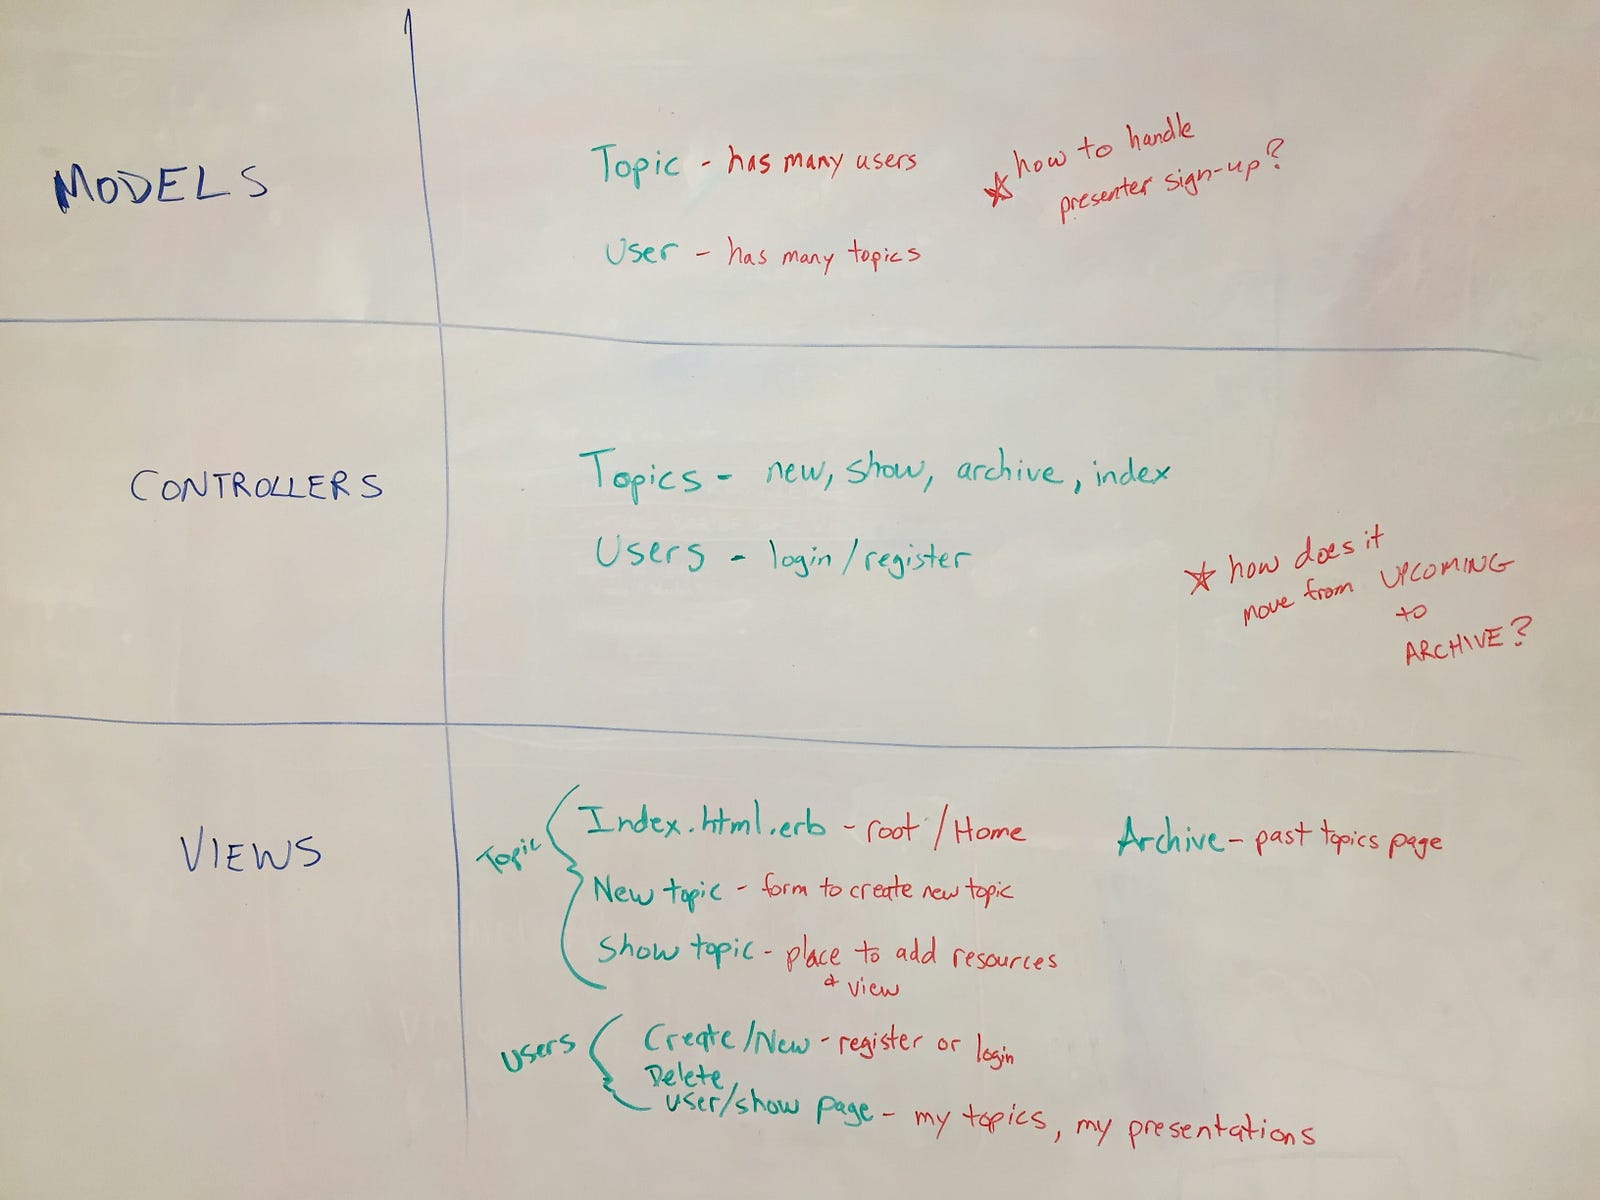 MODELS
Topic - has many users
☆ how to handle
presenter sign-up?
User - has many topics
CONTROLLERS
Topics - new, show, archive, index
Users - login/register
☆ how does it
move from UPCOMING
to
ARCHIVE?
VIEWS
Topic
Index.html.erb - root/Home
Archive - past topics page
New topic - form to create new topic
Show topic - place to add resources
& view
Users
Create/New - register or login
Delete
user/show page - my topics, my presentations